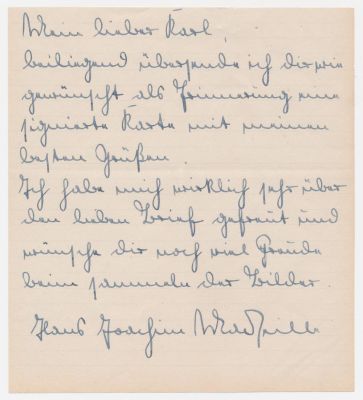 Mein lieber Karl,
beiliegend übersende ich dir wie
gewünscht als Erinnerung eine
signierte Karte mit meinen
besten Grüßen.
Ich habe mich wirklich sehr über
den lieben Brief gefreut und
wünsche dir noch viel Freude
beim sammeln der Bilder.
Hans Joachim